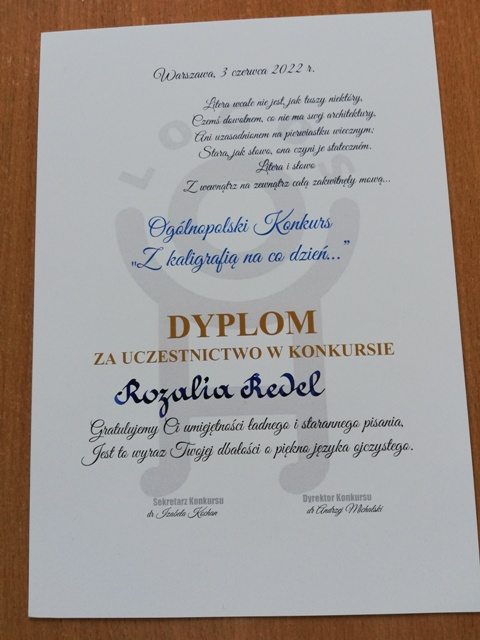 Warszawa, 3 czerwca 2022 r.
Litera wcale nie jest, jak tuszy niektóry,
Czemś dowolnem, co nie ma swej architektury,
Ani uzasadnionem na pierwiastku wiecznym;
Stara, jak słowo, ona czyni je statecznem.
Litera i słowo
Z wewnątrz na zewnątrz całą zakwitnęły mową...
LOGOS
Ogólnopolski Konkurs
„Z kaligrafią na co dzień...”
DYPLOM
ZA UCZESTNICTWO W KONKURSIE
Rozalia Redel
Gratulujemy Ci umiejętności ładnego i starannego pisania,
Jest to wyraz Twojej dbałości o piękno języka ojczystego.
Sekretarz Konkursu
dr Izabela Kochan
Dyrektor Konkursu
dr Andrzej Michalski